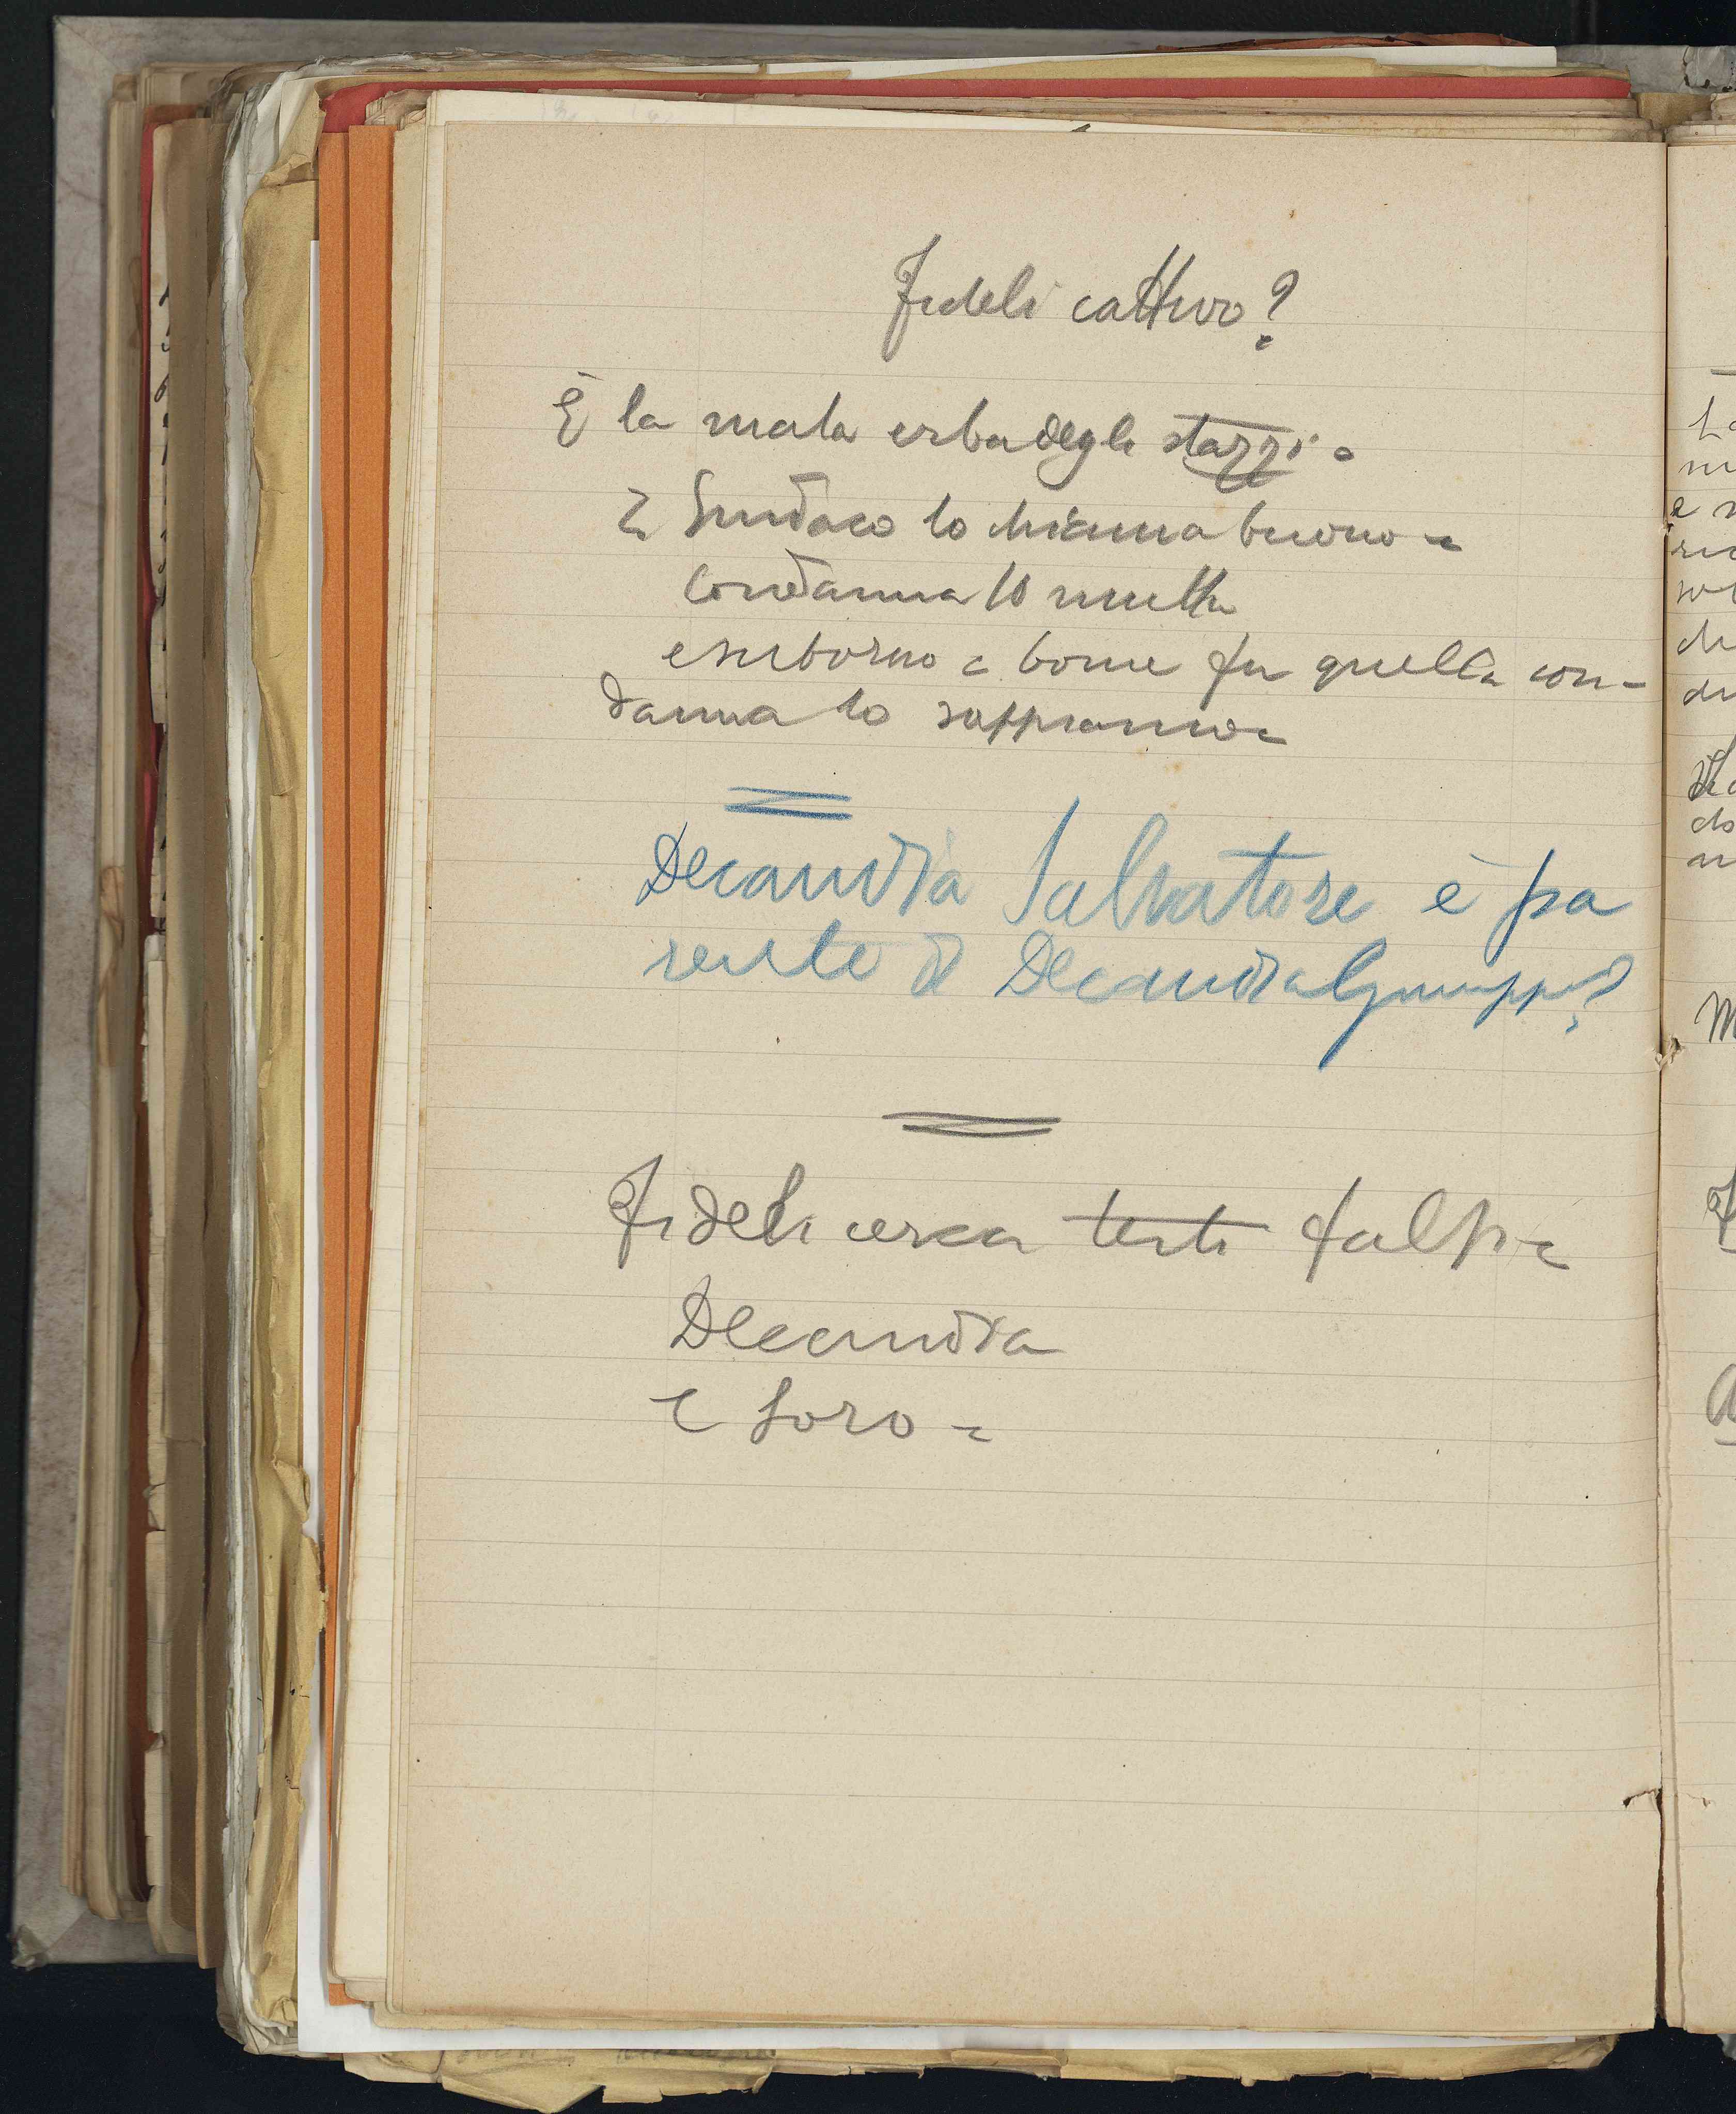 Fideli cattivo?
È la mala erba degli stazzi -
Il Sindaco lo chiama buono -
Condanna 10 multa
e suborno - Come fu quella con-
danna lo sappiamo -
Decandia Salvatore è pa
rente di Decandia Giuseppe?
Fideli cerca testi falsi -
Decandia
e Soro -